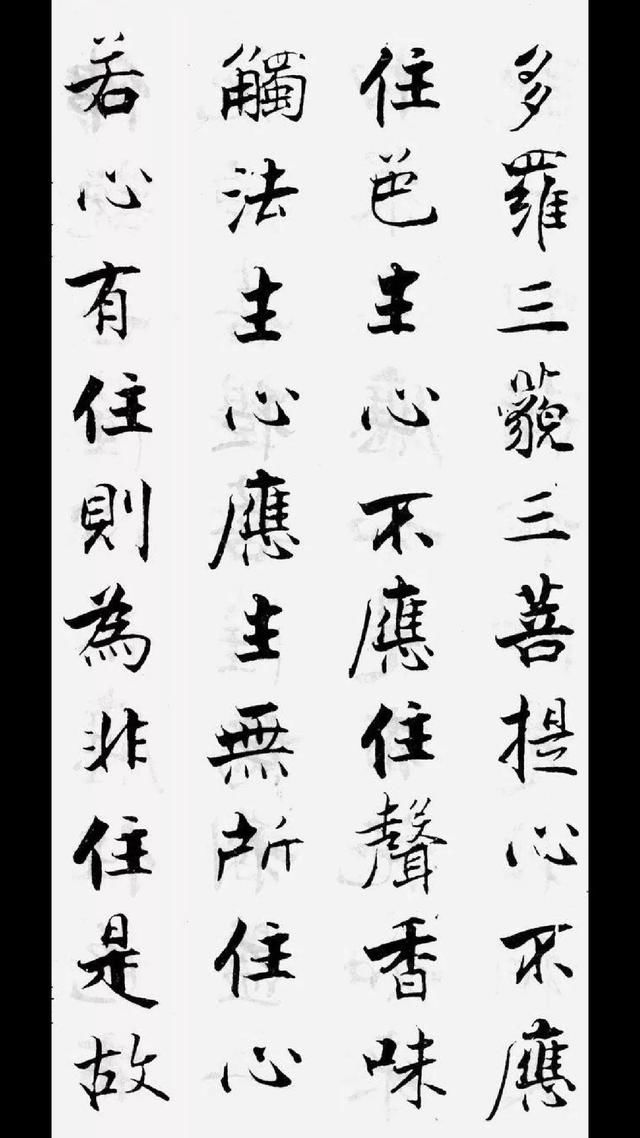 多羅三藐三菩提心不應
住色生心不應住聲香味
觸法生心應生無所住心
若心有住則為非住是故